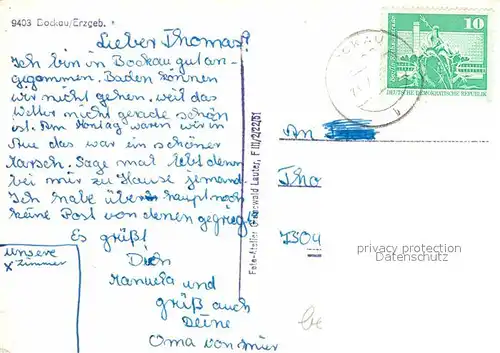 9403 Bockau/Erzgeb.
Lieber Thomas!
Ich bin in Bockau gut an-
gegommen. Baden können
wir nicht gehen, weil das
Wetter nicht gerade schön
ist. Am Montag waren wir in
Aue das war ein schöner
Marsch. Sage mal lebt denn
bei mir zu Hause jemand.
Ich habe überhaupt noch
keine Post von denen gegriegt
Es grüßt
Dich
Manuela und
grüß auch
Deine
Oma von mir
unsere
x Zimmer
Foto-Atelier Griesswald Lauter, F III/2/22/51
10
DEUTSCHE DEMOKRATISCHE REPUBLIK
An
Tho
7304
privacy protection
Datenschutz